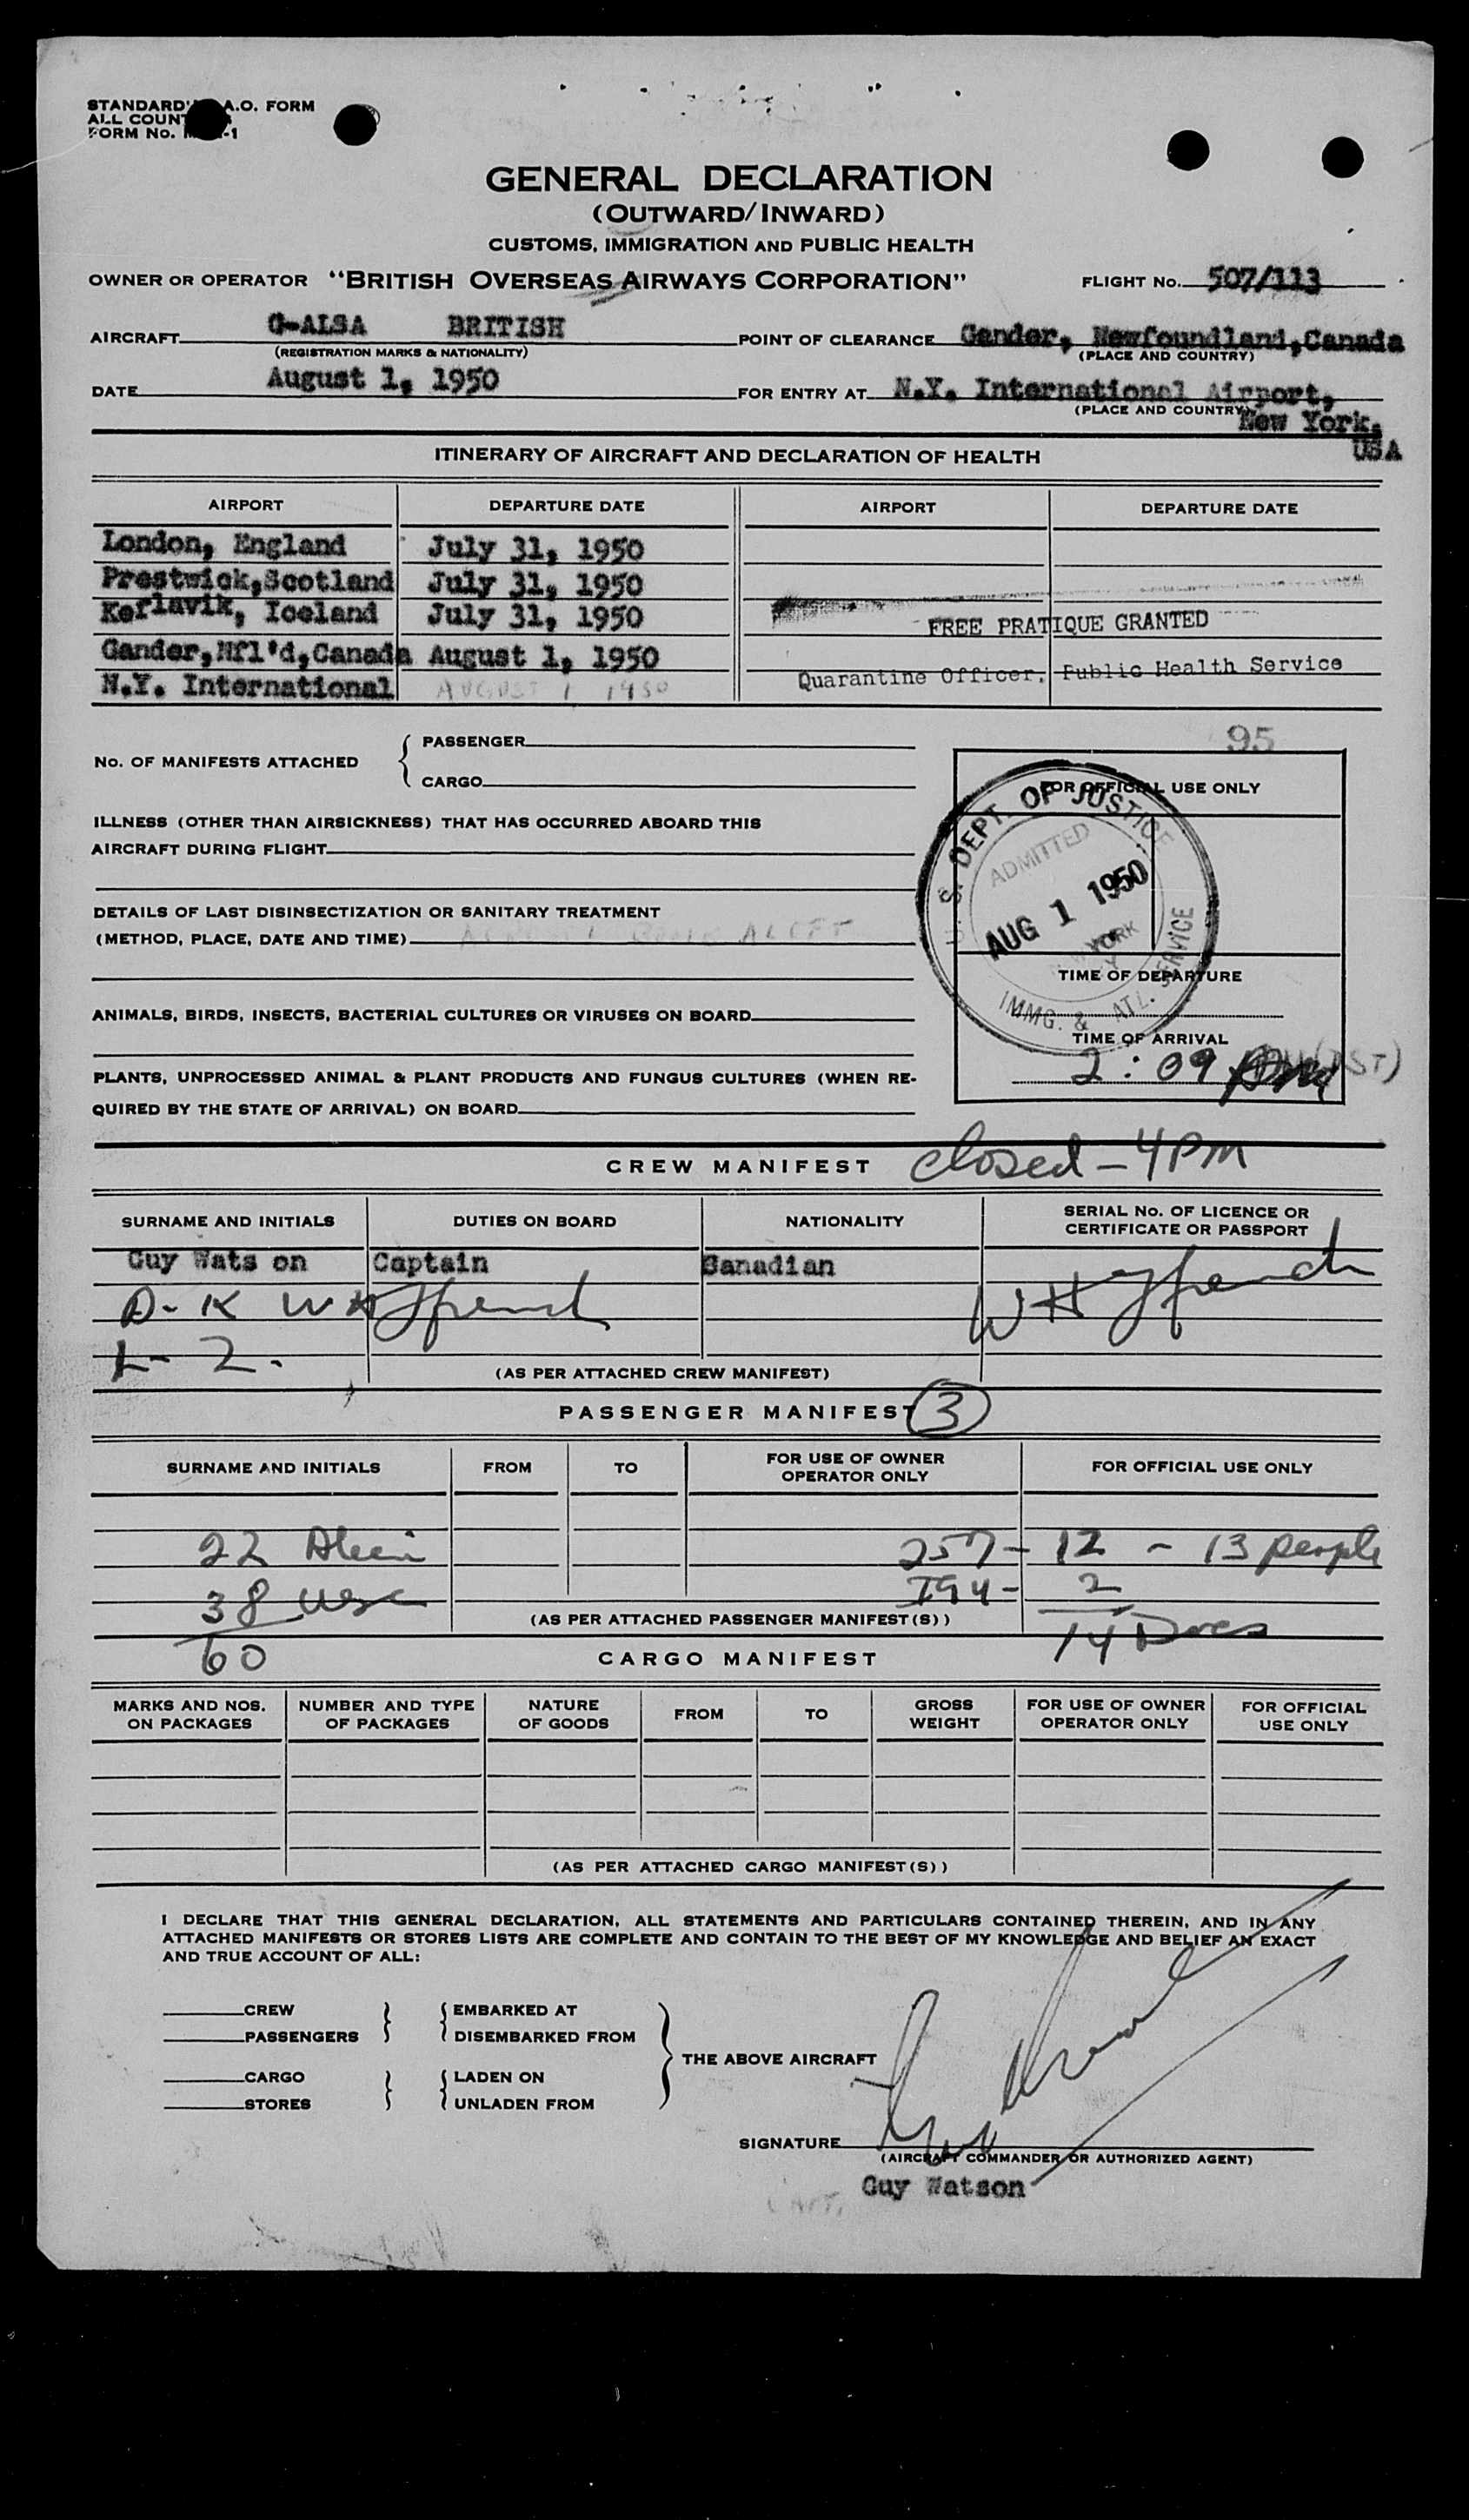 STANDARD A.O. FORM
ALL COUNT
FORM No. -1
GENERAL DECLARATION
(OUTWARD/INWARD)
CUSTOMS, IMMIGRATION AND PUBLIC HEALTH
OWNER OR OPERATOR "BRITISH OVERSEAS AIRWAYS CORPORATION" FLIGHT No. 507/113
AIRCRAFT G-ALSA BRITISH POINT OF CLEARANCE Gander, Newfoundland,Canada
(REGISTRATION MARKS & NATIONALITY) (PLACE AND COUNTRY)
DATE August 1, 1950 FOR ENTRY AT N.Y. International Airport,
(PLACE AND COUNTRY) New York,
USA
ITINERARY OF AIRCRAFT AND DECLARATION OF HEALTH
AIRPORT DEPARTURE DATE AIRPORT DEPARTURE DATE
London, England July 31, 1950
Prestwick,Scotland July 31, 1950
Keflavik, Iceland July 31, 1950 FREE PRATIQUE GRANTED
Gander,Nfl'd,Canada August 1, 1950
Quarantine Officer, Public Health Service
N.Y. International AUGUST 1 1950
95
No. OF MANIFESTS ATTACHED { PASSENGER
CARGO
FOR OFFICIAL USE ONLY
U. S. DEPT. OF JUSTICE
ADMITTED
AUG 1 1950
NEW YORK
IMMG. & NATL. SERVICE
ILLNESS (OTHER THAN AIRSICKNESS) THAT HAS OCCURRED ABOARD THIS
AIRCRAFT DURING FLIGHT
DETAILS OF LAST DISINSECTIZATION OR SANITARY TREATMENT
(METHOD, PLACE, DATE AND TIME)
TIME OF DEPARTURE
ANIMALS, BIRDS, INSECTS, BACTERIAL CULTURES OR VIRUSES ON BOARD
TIME OF ARRIVAL
2:09 pm
PLANTS, UNPROCESSED ANIMAL & PLANT PRODUCTS AND FUNGUS CULTURES (WHEN RE-
QUIRED BY THE STATE OF ARRIVAL) ON BOARD
CREW MANIFEST closed - 4 PM
SURNAME AND INITIALS DUTIES ON BOARD NATIONALITY SERIAL No. OF LICENCE OR
CERTIFICATE OR PASSPORT
Guy Wats on Captain Canadian
(AS PER ATTACHED CREW MANIFEST)
PASSENGER MANIFEST 3
SURNAME AND INITIALS FROM TO FOR USE OF OWNER
OPERATOR ONLY FOR OFFICIAL USE ONLY
22 Alien 257 - 12 - 13 people
38 USC I94 - 2
(AS PER ATTACHED PASSENGER MANIFEST(S))
60 14 Docs
CARGO MANIFEST
MARKS AND NOS.
ON PACKAGES NUMBER AND TYPE
OF PACKAGES NATURE
OF GOODS FROM TO GROSS
WEIGHT FOR USE OF OWNER
OPERATOR ONLY FOR OFFICIAL
USE ONLY
(AS PER ATTACHED CARGO MANIFEST(S))
I DECLARE THAT THIS GENERAL DECLARATION, ALL STATEMENTS AND PARTICULARS CONTAINED THEREIN, AND IN ANY
ATTACHED MANIFESTS OR STORES LISTS ARE COMPLETE AND CONTAIN TO THE BEST OF MY KNOWLEDGE AND BELIEF AN EXACT
AND TRUE ACCOUNT OF ALL:
CREW EMBARKED AT
PASSENGERS DISEMBARKED FROM
THE ABOVE AIRCRAFT
CARGO LADEN ON
STORES UNLADEN FROM
SIGNATURE
(AIRCRAFT COMMANDER OR AUTHORIZED AGENT)
CAPT. Guy Watson